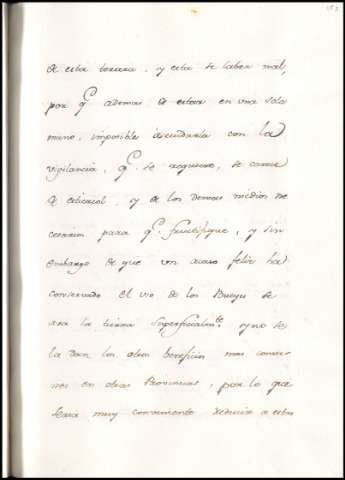 de esta tercera, y esta se labra mal,
por q.e ademas de estar en una sola
mano, imposible atenderla con la
vigilancia, q.e se requiere, se carece
de estiercol, y de los demas medios ne
cesarios para q.e fructifique, y sin
embargo de que un acaso feliz ha
conservado el uso de los Bueyes se
ara la tierra superficialm.te y no se
la dan los otros beneficios mas comu-
nes en otras Provincias, por lo que
sera muy conveniente reducir a estos